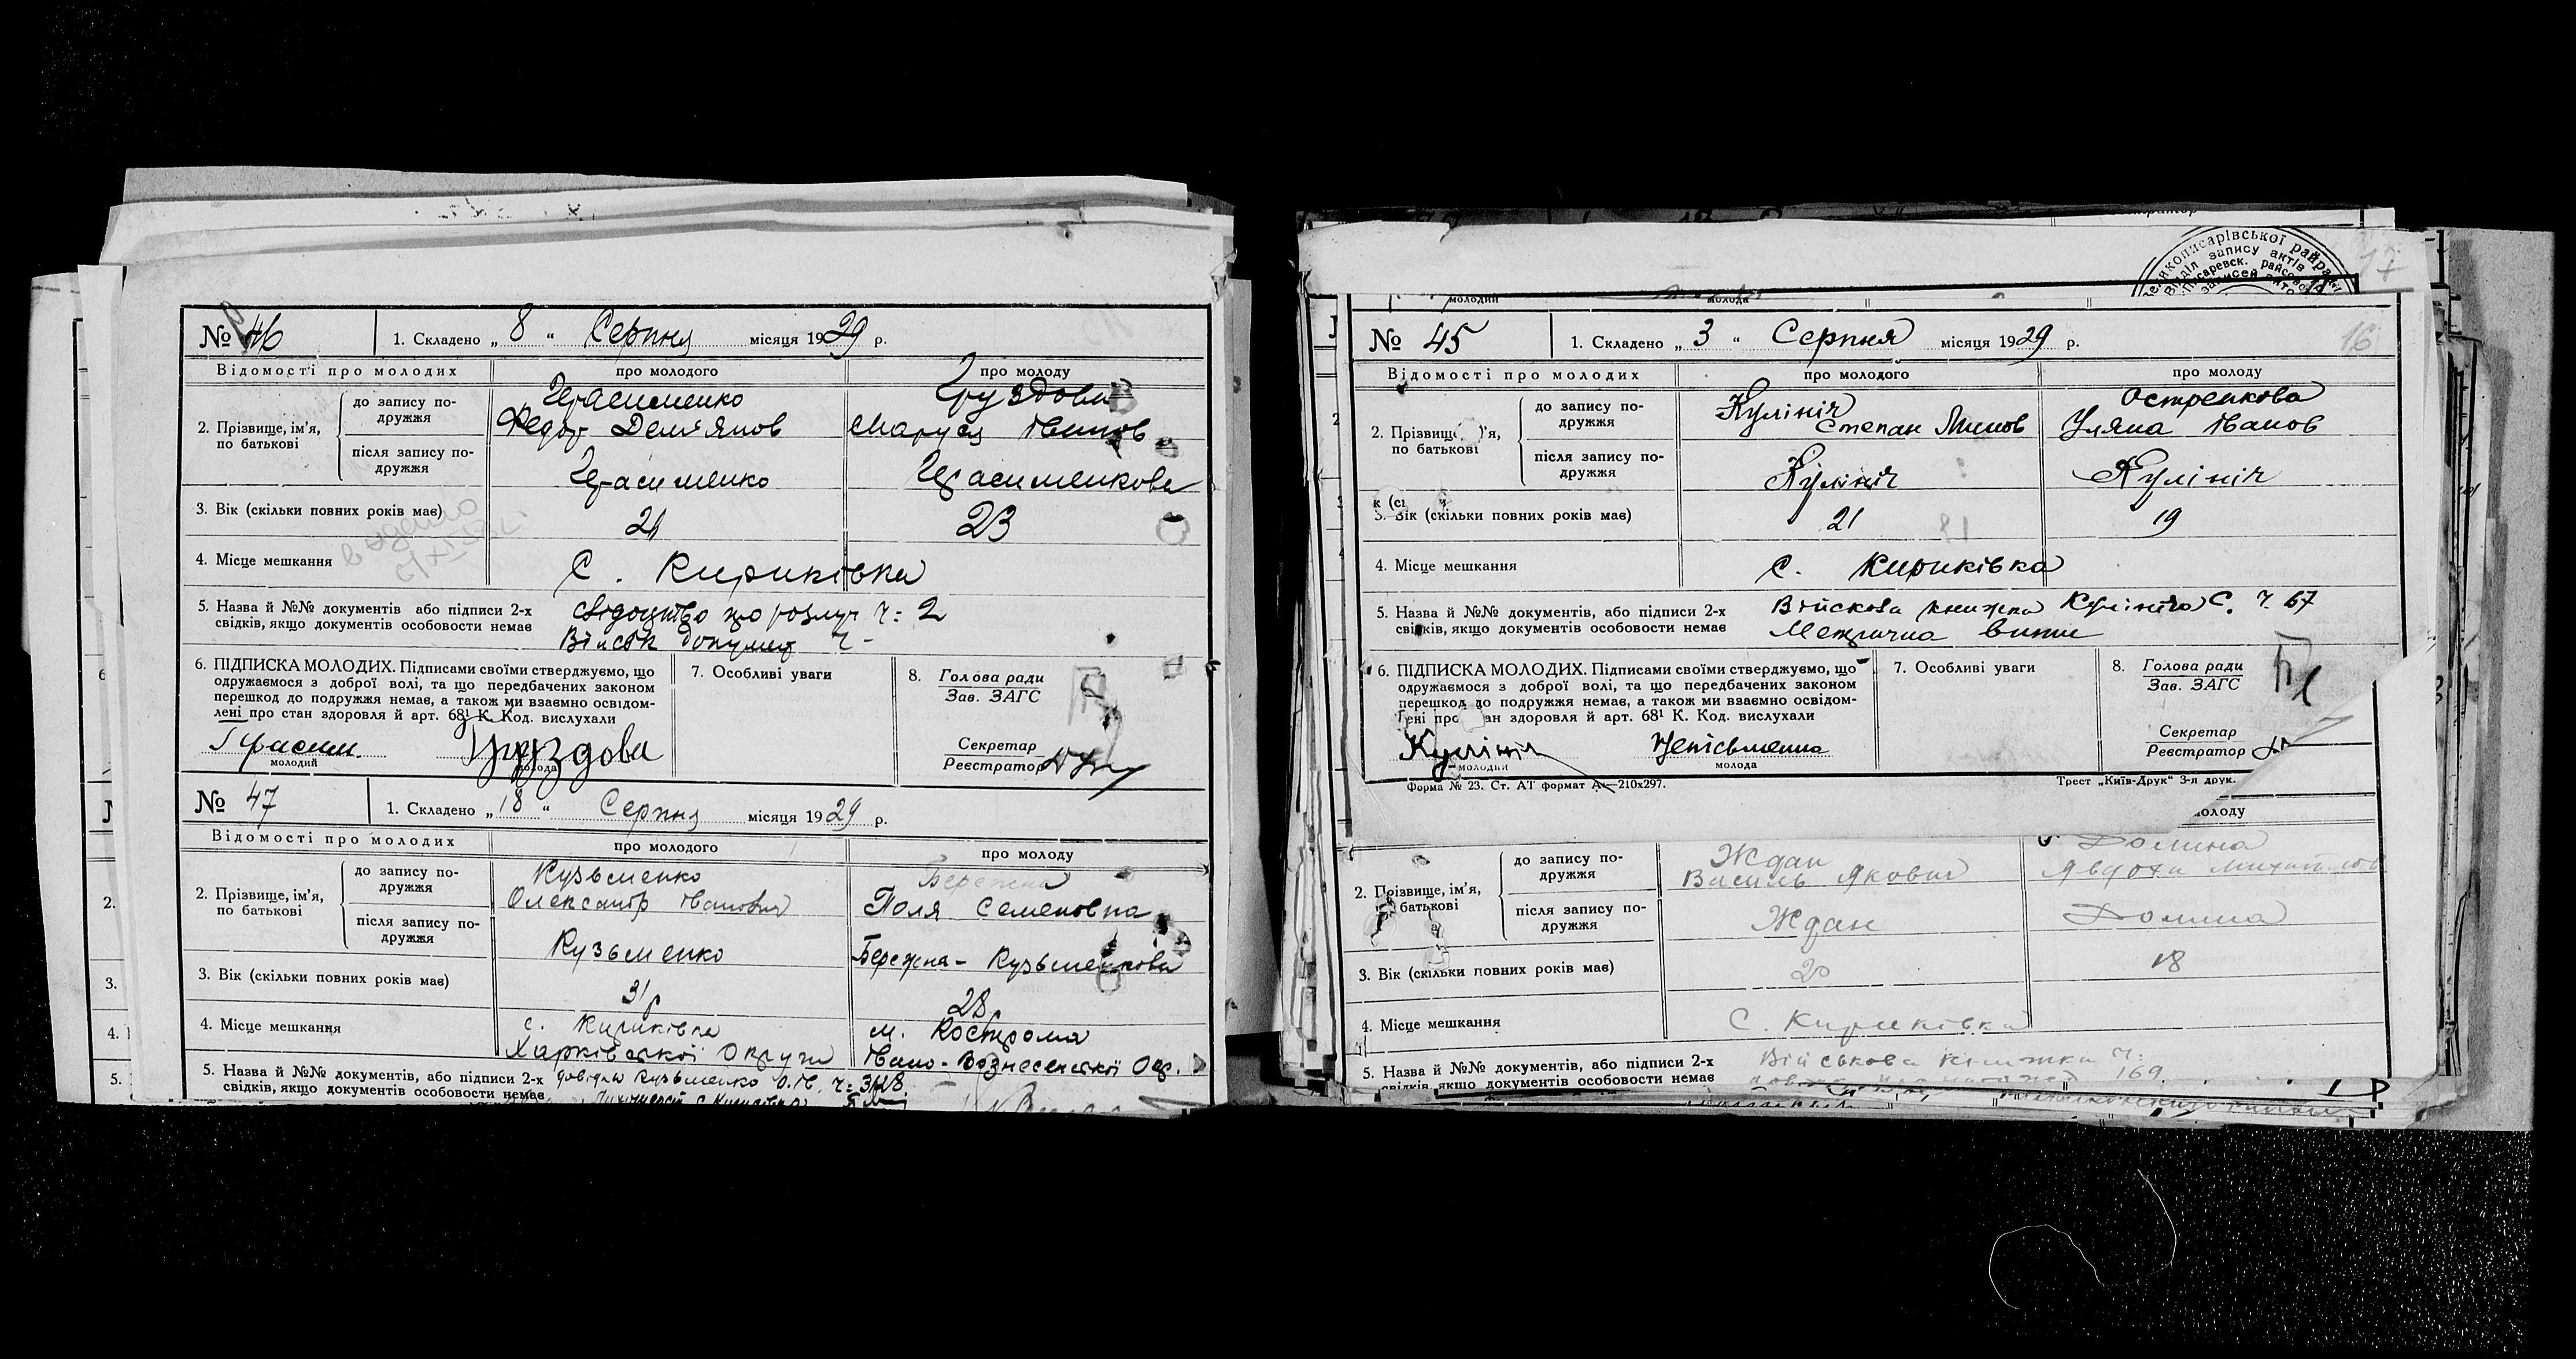 № 46
1. Складено „ 8 “ Серпня місяця 1929 р.
Відомості про молодих
про молодого
про молоду
2. Прізвище, ім’я, по батькові
до запису по-
дружжя
Герасименко
Груздова
Федор Дем'янов
Маруся Іванов
після запису по-
дружжя
Герасименко
Герасименкова
3. Вік (скільки повних років має)
21
23
4. Місце мешкання
С. Кириківка
5. Назва й №№ документів або підписи 2-х
свідків, якщо документів особовости немає
свідоцтво про розлуч ч: 2
Військ документ ч -
6. ПІДПИСКА МОЛОДИХ. Підписами своїми стверджуємо, що
одружаємося з доброї волі, та що передбачених законом
перешкод до подружжя немає, а також ми взаємно освідом-
лені про стан здоровля й арт. 68¹ К. Код. вислухали
Герасим.
молодий
Груздова
молода
7. Особливі уваги
8. Голова ради
Зав. ЗАГС
Секретар
Реєстратор
№ 47
1. Складено „ 18 “ Серпня місяця 1929 р.
Відомості про молодих
про молодого
про молоду
2. Прізвище, ім’я,
по батькові
до запису по-
дружжя
Кузьменко
Бережна
Олександр Іванович
Поля Семеновна
після запису по-
дружжя
Кузьменко
Бережна - Кузьменкова
3. Вік (скільки повних років має)
31р
28
4. Місце мешкання
с. Кириківка
Харківської Округи
м. Кострома
Івано-Вознесенської Окр.
5. Назва й №№ документів, або підписи 2-х
свідків, якщо документів особовости немає
довідка Кузьменко О.Ів. ч: 3118
№ 45
1. Складено „ 3 “ Серпня місяця 1929 р.
16
17
Відомості про молодих
про молодого
про молоду
2. Прізвище, ім’я,
по батькові
до запису по-
дружжя
Кулініч
Степан Минов
Остренкова
Уляна Іванов
після запису по-
дружжя
Кулініч
Кулініч
3. Вік (скільки повних років має)
21
19
4. Місце мешкання
С. Кириківка
5. Назва й №№ документів, або підписи 2-х
свідків, якщо документів особовости немає
Військова книжка Кулініча С. ч. 67
Метрична випис
6. ПІДПИСКА МОЛОДИХ. Підписами своїми стверджуємо, що
одружаємося з доброї волі, та що передбачених законом
перешкод до подружжя немає, а також ми взаємно освідом-
лені про стан здоровля й арт. 68¹ К. Код. вислухали
Кулініч
молодий
Неписьменна
молода
7. Особливі уваги
8. Голова ради
Зав. ЗАГС
Секретар
Реєстратор
Форма № 23. Ст. АТ формат А₄—210х297.
Трест „Київ-Друк“ 3-я друк.
молоду
2. Прізвище, ім’я,
по батькові
до запису по-
дружжя
Ждан
Василь Якович
Долина
Явдоха Михайлов
після запису по-
дружжя
Ждан
Долина
3. Вік (скільки повних років має)
20
18
4. Місце мешкання
С. Кириківка
5. Назва й №№ документів, або підписи 2-х
свідків якщо документів особовости немає
Військова книжка ч.
169